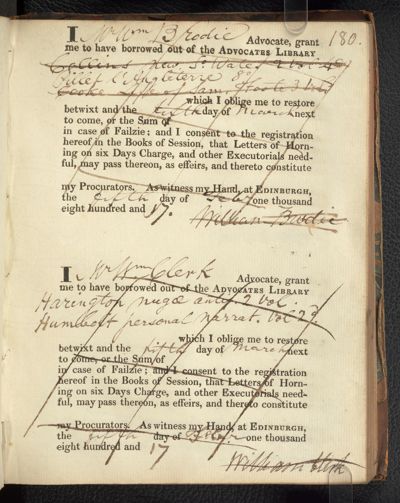 180.
I Mr Wm Brodie Advocate, grant
me to have borrowed out of the ADVOCATES LIBRARY
Collins New S. Wales 2 vol 4o
Cooke Life of Saml Foote 3 vol
which I oblige me to restore
betwixt and the fifth day of March next
to come, or the Sum of
in case of Failzie; and I consent to the registration
hereof in the Books of Session, that Letters of Horn-
ing on six Days Charge, and other Executorials need-
ful, may pass thereon, as effeirs, and thereto constitute
my Procurators. As witness my Hand, at EDINBURGH,
the fifth day of Febr one thousand
eight hundred and 17.
William Brodie
I Mr Wm Clerk Advocate, grant
me to have borrowed out of the ADVOCATES LIBRARY
Harington nugæ antiq 2 Vol.
Humbolt personal narrat. Vol 2d
which I oblige me to restore
betwixt and the fifth day of March next
to come, or the Sum of
in case of Failzie; and I consent to the registration
hereof in the Books of Session, that Letters of Horn-
ing on six Days Charge, and other Executorials need-
ful, may pass thereon, as effeirs, and thereto constitute
my Procurators. As witness my Hand, at EDINBURGH,
the fifth day of Febr one thousand
eight hundred and 17
William Clerk